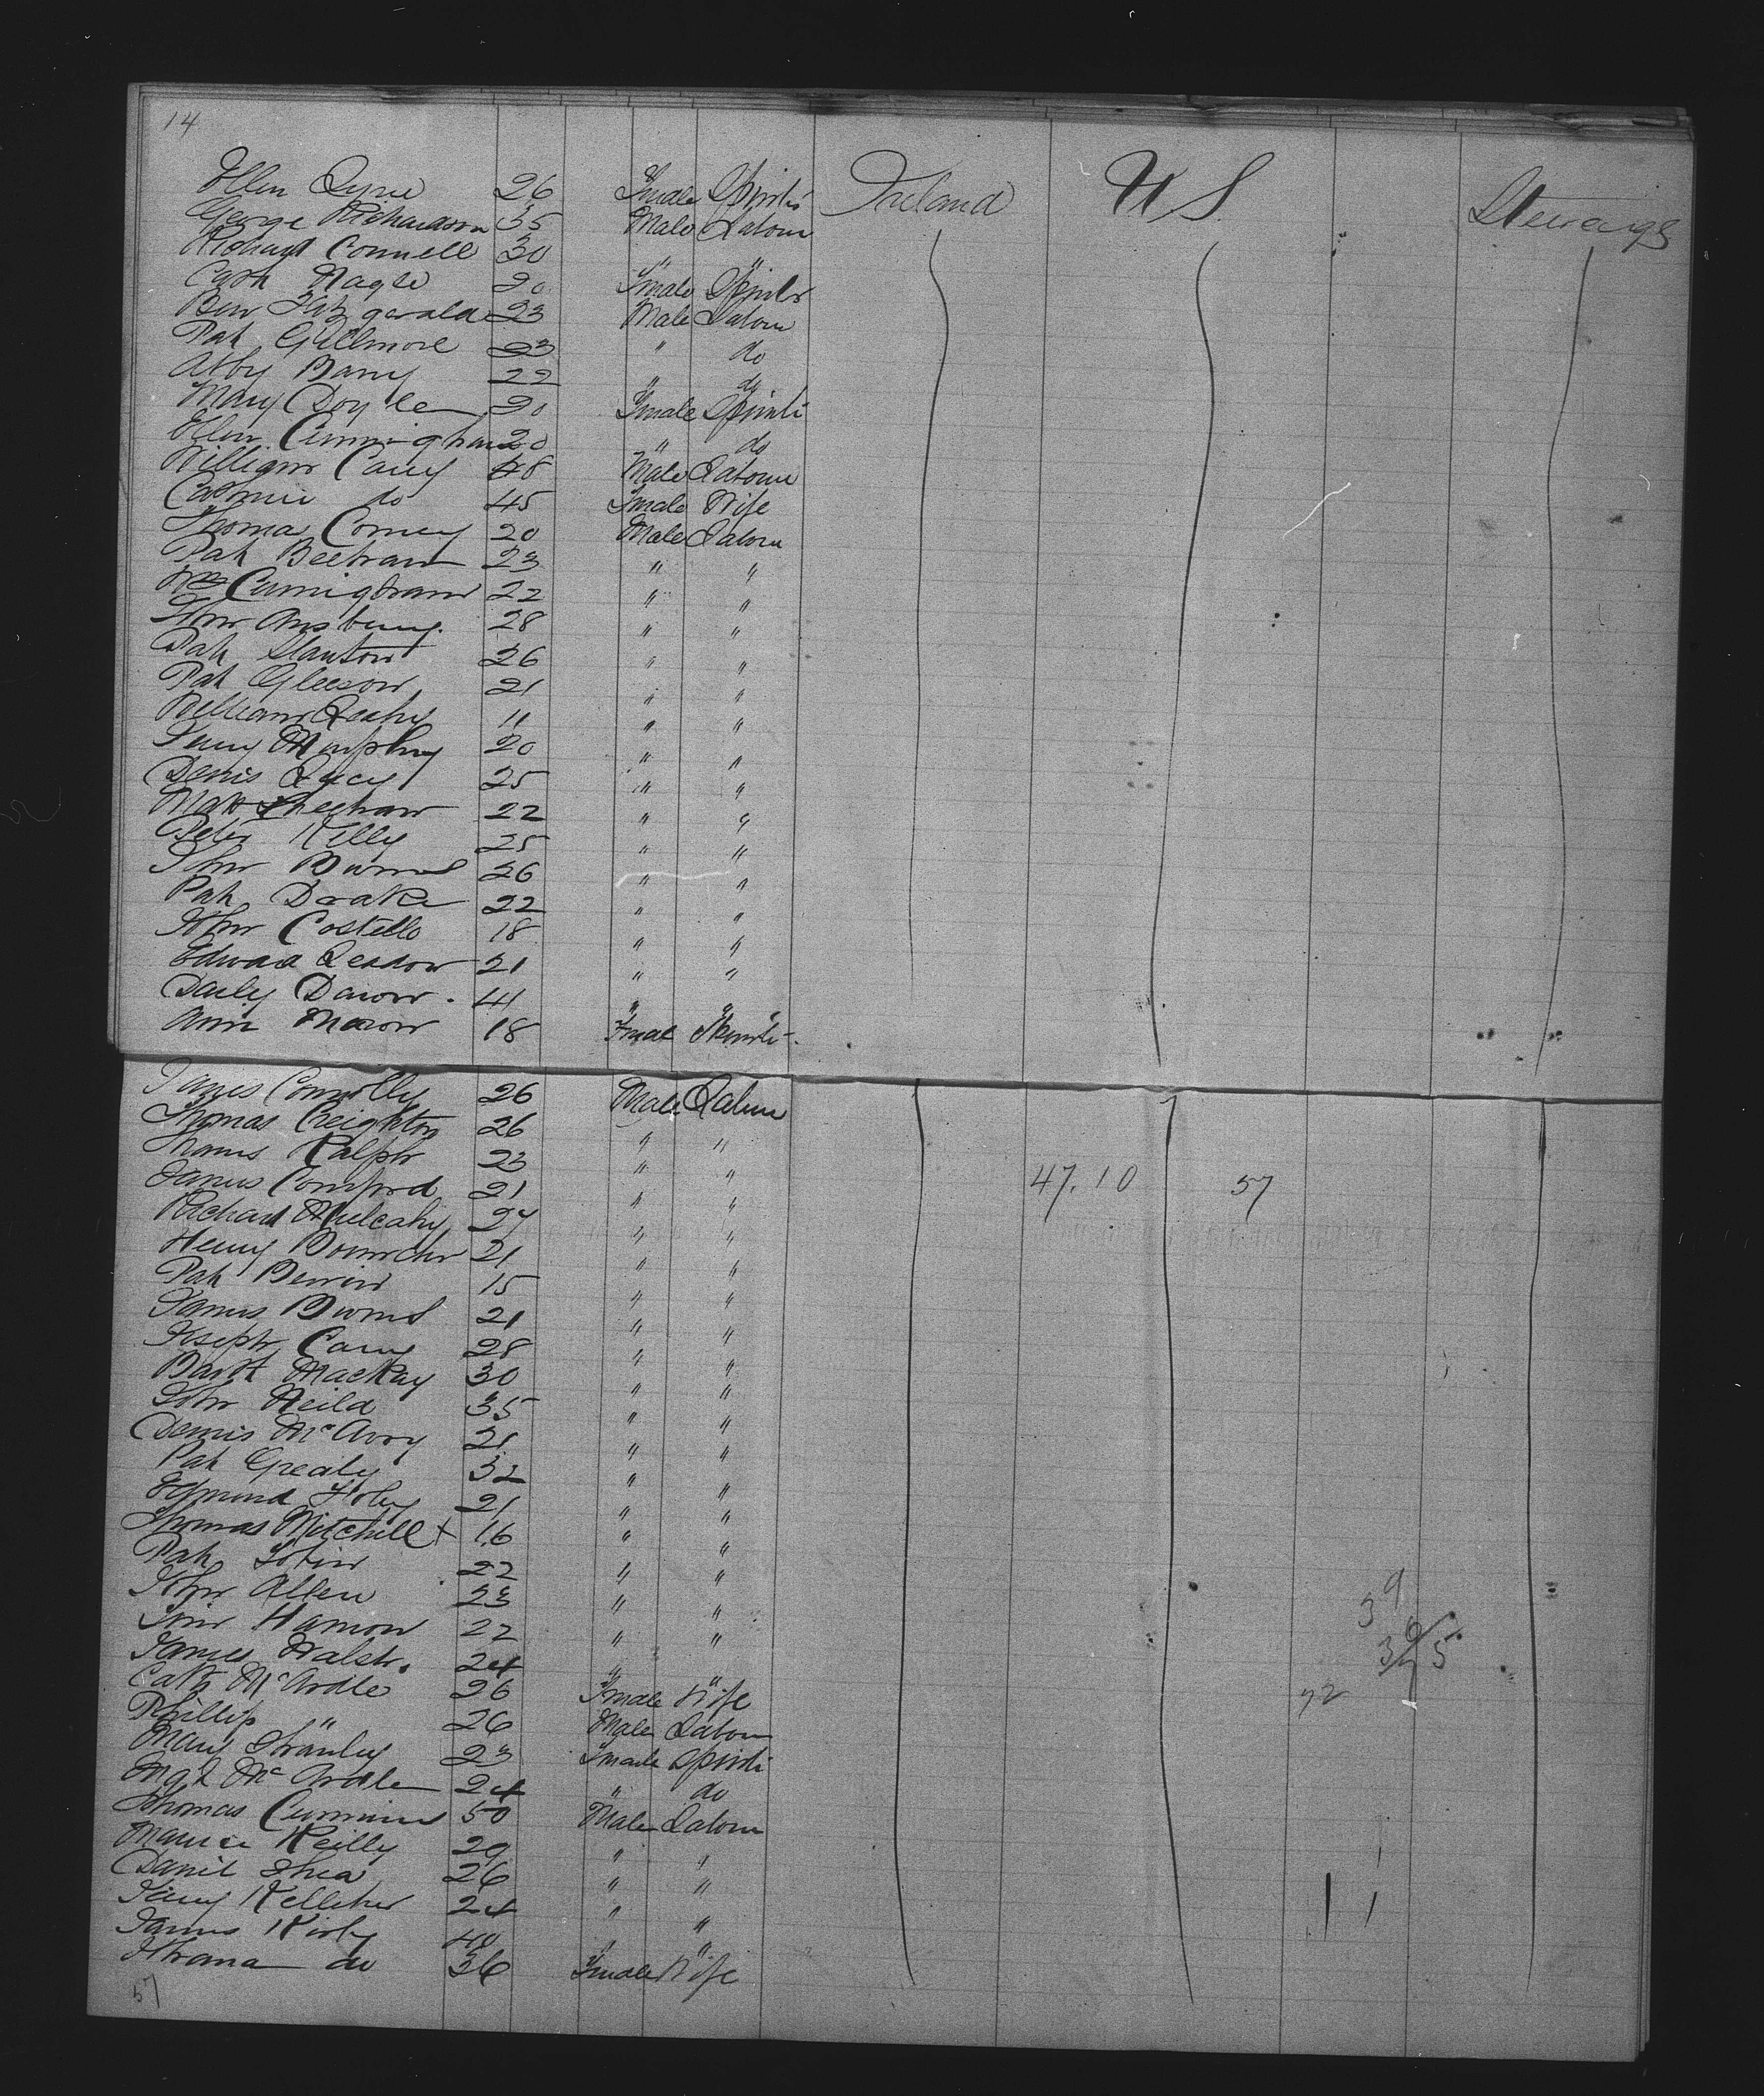 14
Ellen Lyne 26 Female Spinstr Ireland U S. Steerage
George Richardson 35 Male Labour
Richard Connell 30 " "
Cath Nagle 20 Female Spinstr
Ben Fitzgerald 23 Male Labour
Pat Gillmore 23 " do
Abby Barry 22 " do
Mary Doyle 20 Female Spinstr
Ellen Cunningham 20 " do
William Carey 48 Male Labour
Cathrine do 45 Female Wife
Thomas Comey 20 Male Labour
Pat Beehan 23 " "
Wm Cunningham 22 " "
John Ansbury 28 " "
Pat Stanton 26 " "
Pat Gleeson 21 " "
William Leahy 11 " "
Murphy 20 " "
Denis Lucy 25 " "
Matt Sheehan 22 " "
Peter Kelly 25 " "
John Burns 26 " "
Pat Drake 22 " "
John Costello 18 " "
Edward 21 " "
Daily 41 " "
Ann 18 Femal Spinstr
James Connolly 26 Male Labour
Thomas Creighton 26 " "
Ralph 23 " "
James Comford 21 " " 47.10 57
Richard Mulcahy 27 " "
Henry 21 " "
Pat 15 " "
James Burns 21 " "
Joseph Carey 28 " "
Bart Mackay 30 " "
John Neild 35 " "
Dennis McAvoy 21 " "
Pat Grealy 32 " "
Edmund Foley 21 " "
Thomas Mitchell + 16 " "
Pat Tobin 22 " "
John Allen 23 " " 39
Hannon 22 " "
James Walsh 24 " "
Cath McArdle 26 Female Wife 72
Phillip " 26 Male Labour
Mary Stanley 23 Female Spinstr
Mgt McArdle 24 " do
Thomas Cummins 50 Male Labour
Maurice Reilly 29 " "
Daniel Shea 26 " "
Kelleher 24 " "
James Kirby 40 " "
do 36 Female Wife
57